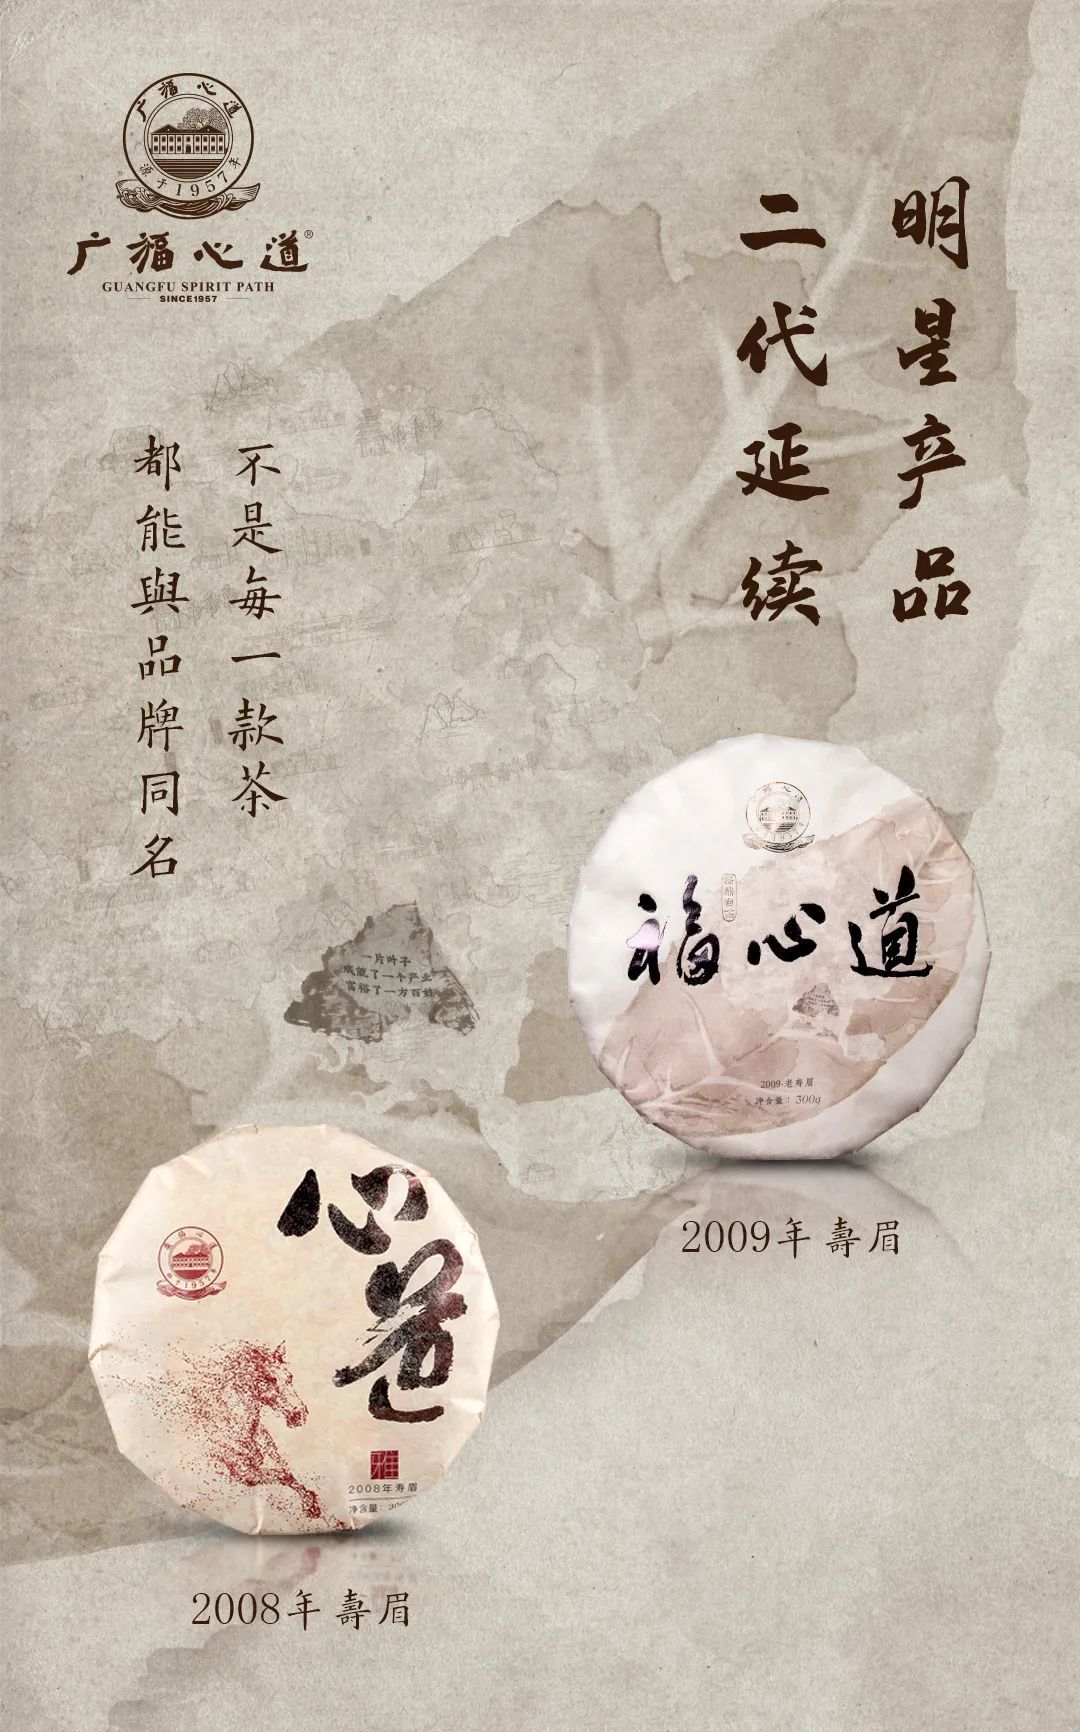 广福心道
源于1957年
广福心道®
GUANGFU SPIRIT PATH
SINCE1957
明星产品
二代延续
不是每一款茶
都能與品牌同名
一片叶子
成就了一个产业
富裕了一方百姓
广福心道
源于1957年
福鼎白茶
福心道
2009·老寿眉
净含量：300g
2009年 壽眉
广福心道
源于1957年
心
雅
2008年寿眉
净含量：
2008年 壽眉